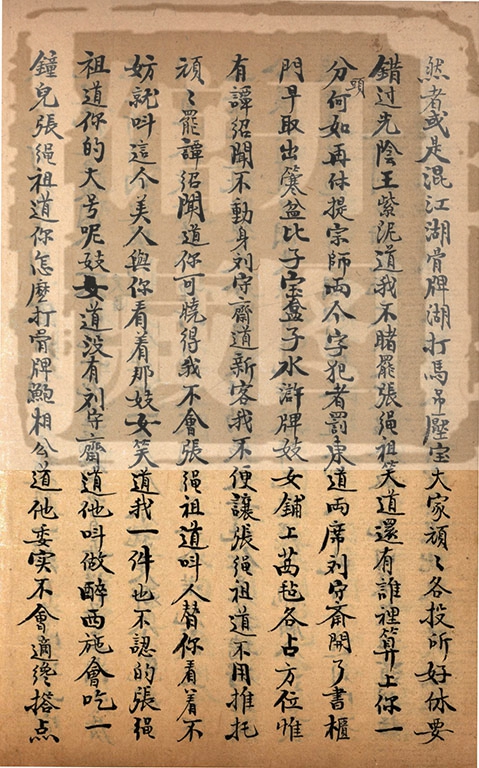 然者或是混江湖骨牌湖打馬吊壓宝大家頑〻各投所好休要
錯过光陰王紫泥道我不睹罷張绳祖笑道還有誰裡算上你一
分頭何如再休提宗師两个字犯者罰東道两席刘守斎開了書櫃
門早取出簺盆比子宝盒子水滸牌妓女鋪上茜毡各占方位惟
有譚绍聞不動身刘守齋道新客我不便讓張绳祖道不用推托
頑〻罷譚绍聞道你可曉得我不會張绳祖道叫人替你看着不
妨就叫這个美人與你看着那妓女笑道我一件也不認的張绳
祖道你的大号呢妓女道没有刘守齋道他叫做醉西施會吃一
鐘兒張绳祖道你怎麽打骨牌鮑相公道他委实不會適終搭点